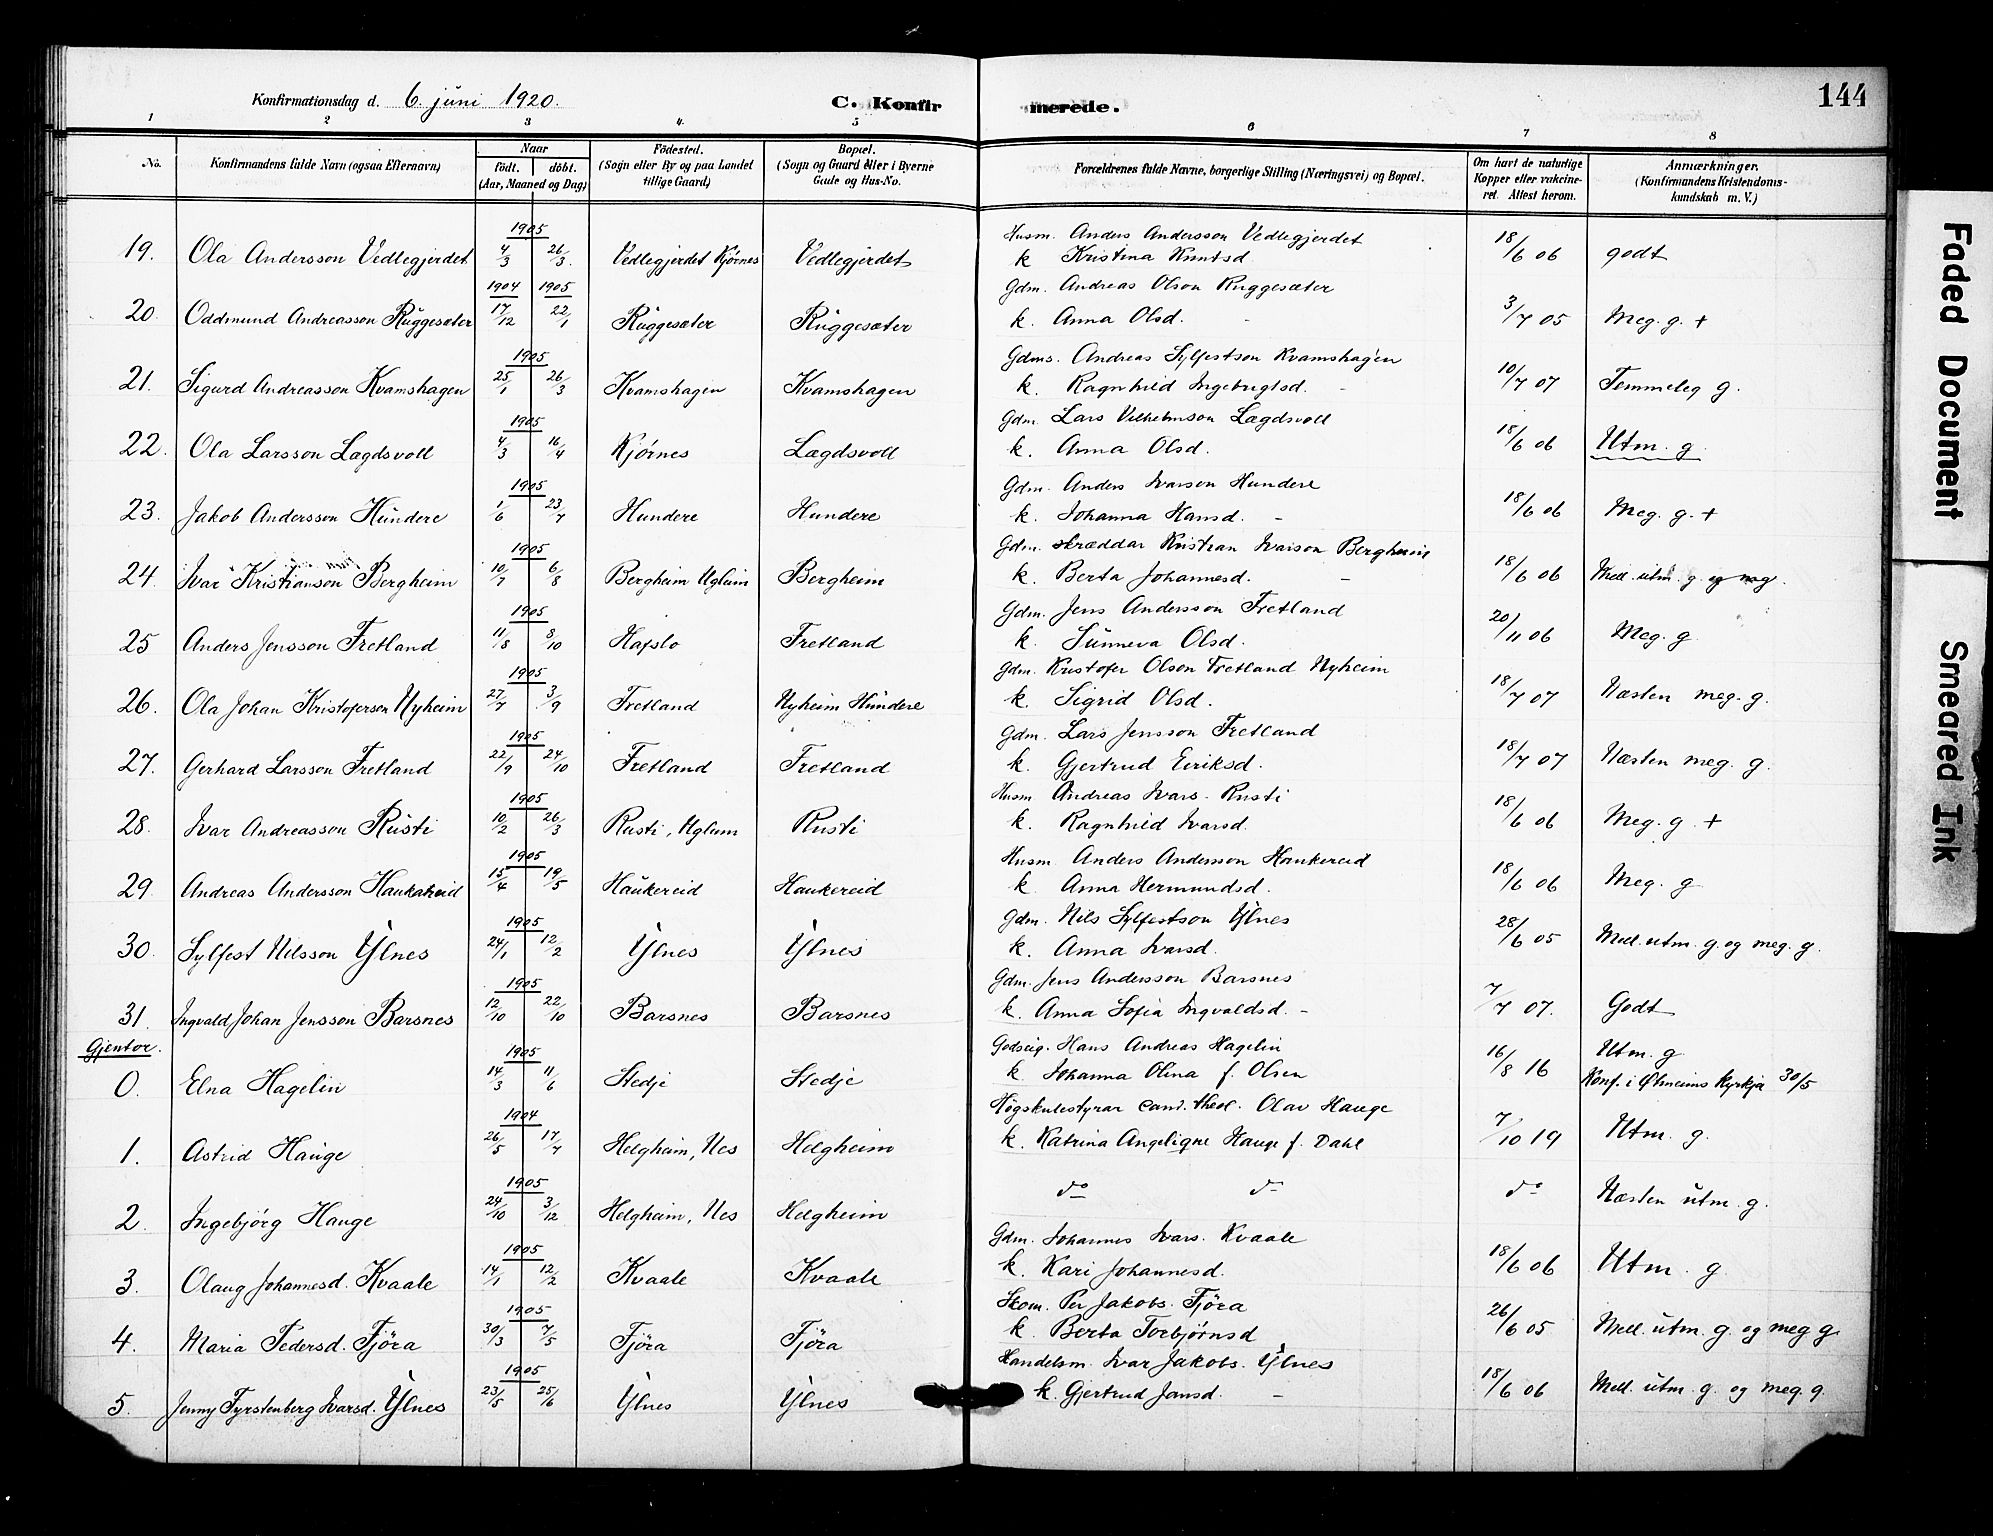 Konfirmationsdag d. 6. juni 1920. C. Konfirmerede. 144
1 2 3 4. 5 6 7 8
No. Konfirmandens fulde Navn (ogsaa Efternavn) Naar födt. döbt. (Aar, Maaned og Dag) Födested. (Sogn eller By og paa Landet tillige Gaard) Bopæl. (Sogn og Gaard eller i Byerne Gade og Hus-No. Forældrenes fulde Navne, borgerlige Stilling (Næringsvei) og Bopæl. Om havt de naturlige Kopper eller vakcineret. Attest herom. Anmærkninger. (Konfirmandens Kristendomskundskab m. V.)
19. Ola Andersson Vedlegjerdet 1905 4/3 26/3. Vedlegjerdet Kjørnes Vedlegjerdet Husm. Anders Andersson Vedlegjerdet k Kristina Knutsd. 18/6 06 godt
20. Oddmund Andreasson Rüggesæter 1904 17/12 1905 22/1 Rüggesæter Rüggesæter Gdm. Andreas Olson Ruggesæter k. Anna Olsd. - 3/7 05 Meg. g. +
21. Sigurd Andreasson Kvamshagen 1905 25/1 26/3 Kvamshagen Kvamshagen Gdms. Andreas Sylfestson Kvamshagen k. Ragnhild Ingebrigtsd. - 10/7 07 Temmeleg g.
22. Ola Larsson Lægdsvoll 1905 4/3 16/4 Kjørnes Lægdsvoll Gdm. Lars Vilhelmson Lægdsvoll k. Anna Olsd. 18/6 06 Utm. g.
23. Jakob Andersson Hündere 1905 1/6 23/7 Hundere Hundere Gdm. Anders Ivarson Hundere k. Johanna Hansd. - 18/6 06 Meg. g. +
24. Ivar Kristianson Bergheim 1905 10/7 6/8 Bergheim Uglum Bergheim Gdm. skræddar Kristian Ivarson Bergheim k. Berta Johannesd. - 18/6 06 Mell. utm. g. og meg.
25 Anders Jensson Fretland 1905 11/8 8/10 Hafslo Fretland Gdm. Jens Andersson Fretland k. Sünneva Olsd. 20/11 06 Meg. g
26. Ola Johan Kristofersen Nyheim 1905 27/7 3/9 Fretland Nyheim Hündere Gdm. Kristofer Olson Fretland Nyheim k. Sigrid Olsd. 18/7 07 Næsten meg. g.
27. Gerhard Larsson Fretland 1905 22/9 24/10 Fretland Fretland Gdm. Lars Jensson Fretland k. Gjertrud Eiriksd. 18/7 07 Næsten meg. g.
28. Ivar Andreasson Rüsti 1905 10/2 26/3 Rusti, Uglum Rusti Husm. Andreas Ivars. Rusti k. Ragnhild Ivarsd. 18/6 06 Meg. g. +
29. Andreas Andersson Haukareid 1905 15/4 19/5 Haükereid Haukereid Husm. Anders Andersson Haukereid k. Anna Hermundsd. 18/6 06 Meg. g
30. Sylfest Nilsson Ylnes 1905 24/1 12/2 Ylnes Ylnes Gdm. Nils Sylfestson Ylnes k. Anna Ivarsd. 28/6 05 Mell. utm. g. og meg. g.
31. Ingvald Johan Jensson Barsnes 1905 12/10 22/10 Barsnes Barsnes Gdm. Jens Andersson Barsnes k. Anna Sofia Ingvaldsd. - 7/7 07. Godt
Gjentor.
0. Elna Hagelin 1905 14/3 11/6 Stedje Stedje Godseig. Hans Andreas Hagelin k. Johanna Olina f. Olsen 16/8 16 Utm. g Konf. i kyrkja 30/5
1. Astrid Hauge 1904 26/5 17/7 Helgheim, Nes Helgheim Högskulestyrar cand. theol. Olav Hauge k. Katrina Angeligne Hauge f. Dahl 7/10 19 Utm. g.
2. Ingebjörg Hauge 1905 24/10 3/12 Helgheim, Nes Helgheim do do do Næsten utm. g.
3. Olaug Johannesd. Kvaale 1905 14/1 12/2 Kvaale Kvaale Gdm. Johannes Ivars. Kvaale k. Kari Johannesd. 18/6 06 Utm. g
4. Maria Pedersd. Fjöra 1905 30/3 7/5 Fjöra Fjöra Skom. Per Jakobs. Fjöra k. Berta Torbjørnsd 26/6 05 Mell. utm. g. og meg g.
5. Jenny Fyrstenberg Ivarsd. Ylnes 1905 23/5 25/6 Ylnes Ylnes Handelsm. Ivar Jakobs. Ylnes k. Gjertrud Jansd. - 18/6 06 Mell. utm. g. og meg. g.
Faded Document
Smeared Ink